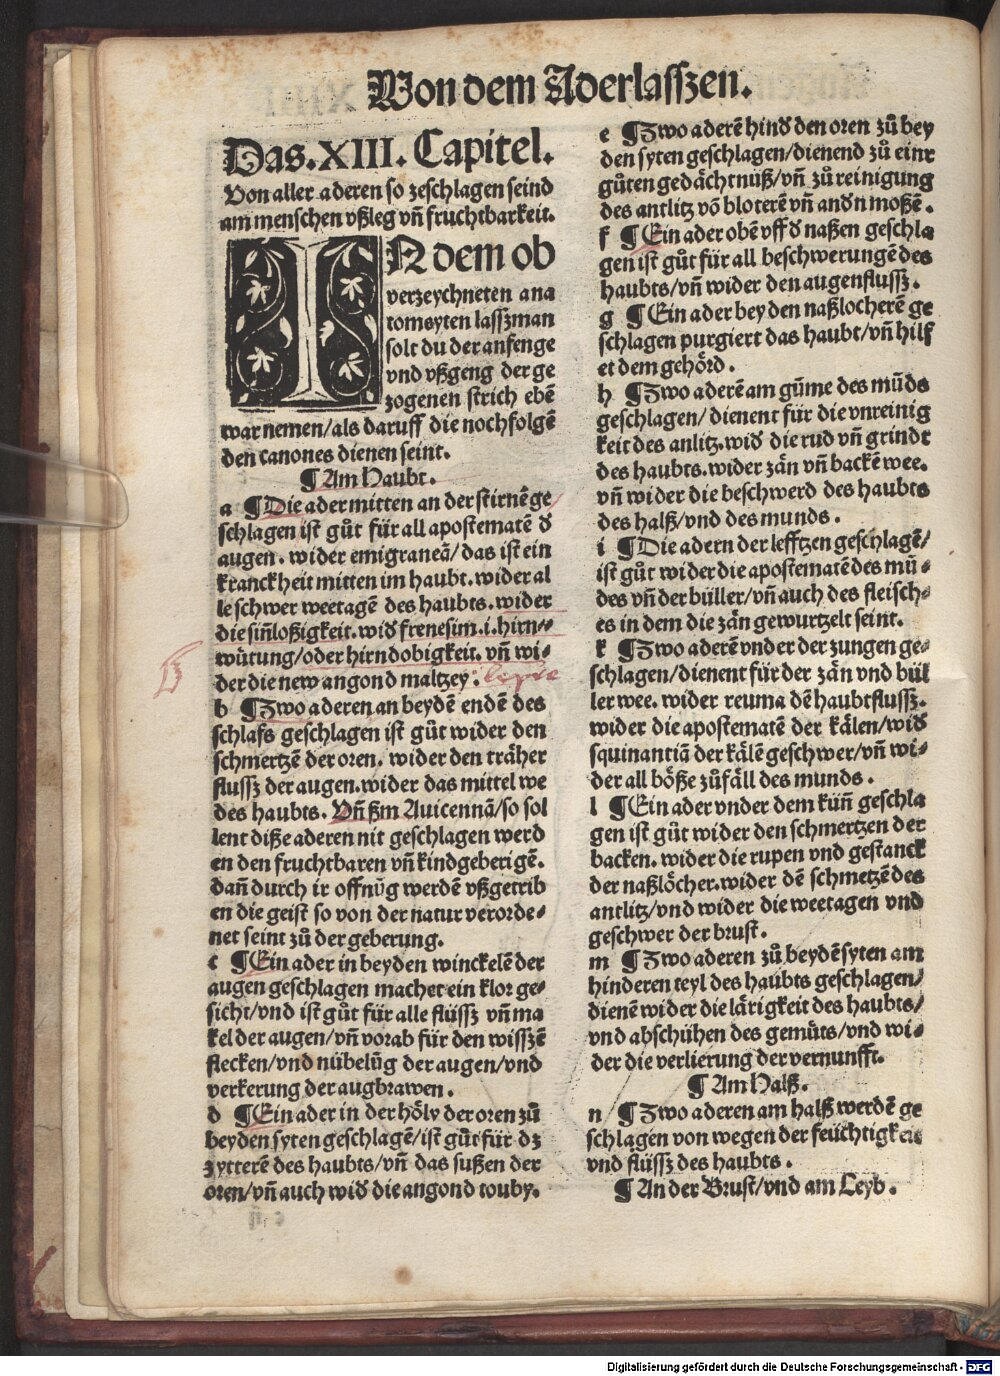 Von dem Aderlasszen.
Das.XIII.Capitel.
Von aller aderen so zeschlagen seind
am menschen vßleg vñ fruchtbarkeit.
IN dem ob
verzeychneten ana
tomeyten lasszman
solt du der anfenge
vnd vßgeng der ge
zogenen strich ebē
war nemen/als daruff die nochfolgē
den canones dienen seint.
¶ Am Haubt.
a ¶ Die ader mitten an der stirnē ge
schlagen ist gůt für all apostematē d̄
augen. wider emigraneā/das ist ein
kranckheit mitten im haubt. wider al
le schwer weetagē des haubts. wider
die siñloßigkeit. wid̄ frenesim.i.hirn⸗
wůtung/oder hirndobigkeit. vñ wi⸗
der die new angond maltzey. lepra
b ¶ Zwo aderen an beydē endē des
schlafs geschlagen ist gůt wider den
schmertzē der oren. wider den träher
flussz der augen. wider das mittel we
des haubts. Vñ ßm Auicennā/so sol
lent diße aderen nit geschlagen werd
en den fruchtbaren vñ kindgeberigē.
dañ durch ir offnūg werdē vßgetrib
en die geist so von der natur verorde⸗
net seint zů der geberung.
c ¶ Ein ader in beyden winckelē der
augen geschlagen machet ein klor ge⸗
sicht/vnd ist gůt für alle flüssz vñ ma
kel der augen/vñ vorab für den wisszē
flecken/vnd nübelūg der augen/vnd
verkerung der augbrawen.
d ¶ Ein ader in der hölv der oren zů
beyden syten geschlagē/ist gůt für dz
zytterē des haubts/vñ das sußen der
oren/vñ auch wid̄ die angond touby.
e ¶ Zwo aderē hind̄ den oren zů bey
den syten geschlagen/dienend zů einr
gůten gedächtnüß/vñ zů reinigung
des antlitz vō bloterē vñ and̄n moßē.
f ¶ Ein ader obē vff d̄ naßen geschla
gen ist gůt für all beschwerungē des
haubts/vñ wider den augenflussz.
g ¶ Ein ader bey den naßlocherē ge
schlagen purgiert das haubt/vñ hilf
et dem gehörd.
h ¶ Zwo aderē am gůme des mūds
geschlagen/ dienent für die vnreinig
keit des anlitz. wid̄ die rud vñ grindt
des haubts. wider zän vñ backē wee.
vñ wider die beschwerd des haubts
des halß/vnd des munds.
i ¶ Die adern der lefftzen geschlagē/
ist gůt wider die apostematē des mū⸗
des vñ der büller/vñ auch des fleisch⸗
es in dem die zän gewurtzelt seint.
k ¶ Zwo aderē vnder der zungen ge⸗
schlagen/dienent für der zän vnd bül
ler wee. wider reuma dē haubtflussz.
wider die apostematē der kälen/wid̄
squinantiā der kälē geschwer/vñ wi⸗
der all böße zůfäll des munds.
l ¶ Ein ader vnder dem küñ geschla
gen ist gůt wider den schmertzen der
backen. wider die rupen vnd gestanck
der naßlöcher. wider dē schmetzē des
antlitz/vnd wider die weetagen vnd
geschwer der brust.
m ¶ Zwo aderen zů beydē syten am
hinderen teyl des haubts geschlagen/
dienē wider die lärigkeit des haubts/
vnd abschühen des gemůts/vnd wi⸗
der die verlierung der vernunfft.
¶ Am Halß.
n ¶ Zwo aderen am halß werdē ge
schlagen von wegen der feüchtigkeit
vnd flüssz des haubts.
¶ An der Brust/vnd am Leyb.
Digitalisierung gefördert durch die Deutsche Forschungsgemeinschaft - DFG